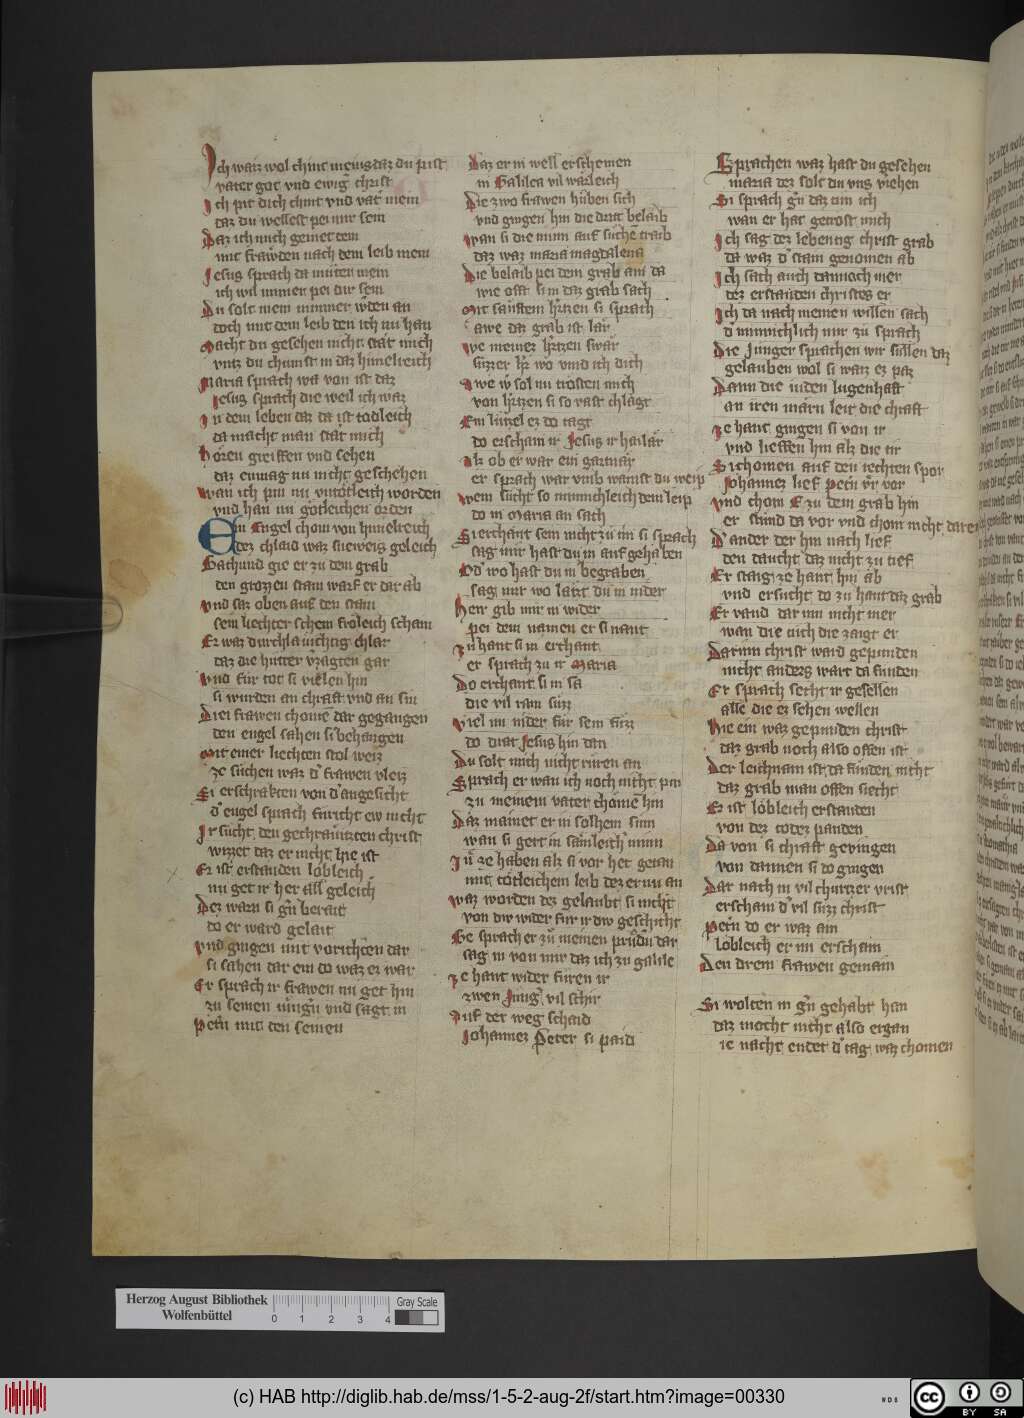 Ich waiz wol chint meins daz du pist
vater got vnd ewig christ
Ich pit dich chint vnd vat' mein
daz du wellest pei mir sein
Daz ich mich geniet dein
mit frawden nach dem leib mein
Jesus sprach da muter mein
ich wil immer pei dir sein
Du solt mein nimmer an
doch mit dem leib den ich nu han
Macht du gesehen nicht stat mich
vntz du chumst in daz himelreich
Maria sprach wa von ist daz
Jesus sprach die weil ich waz
In dem leben daz da ist todleich
da macht man stat mich
Horen greiffen vnd sehen
daz enmag nu nicht geschehen
Wan ich pin nu vntotleich worden
vnd han nu gotleichen orden
Ein Engel chom von himelreich
dez chlaid waz sneweis geleich
Sachund gie er zu dem grab
den grozen stain warf er dar ab
Vnd saz oben auf den stain
sein liechter schein froleich schain
Er waz durchlauchtig chlar
daz die hutter v'zagten gar
Vnd fur tot si vielen hin
si wurden an chraft vnd an sin
Drei frawen chome dar gegangen
den engel sahen si behangen
Mit einer liechten stol weiz
ze suchen waz d' frawen vleiz
Si erschrakten von d' angesicht
d' engel sprach furicht ew nicht
Ir sucht den gechrauzten christ
wizzet daz er nicht hie ist
Er ist erstanden lobleich
nu get ir her all geleich
Dez warn si g'n berait
do er ward gelait
Vnd gingen mit vorichten dar
si sahen dar ein do waz er war
Er sprach ir frawen nu get hin
zu seinen iung'n vnd sagt in
Petern mit den seinen
Daz er in well erscheinen
in Galilea vil warleich
Die zwo frawen huben sich
vnd gingen hin die drit belaib
Wan si die minn auf suche traib
daz waz maria magdalena
Die belaib pei dem grab ani da
wie offt si in daz grab sach
Mit sauftem h'tzen si sprach
awe daz grab ist lar
We meinez h'tzen swar
suzzer h'r wo vind ich dich
Awe w' sol nu trosten mich
von h'tzen si so vast chlagt
Ein lutzel ez do tagt
do erschain ir Jesus ir hailar
Alz ob er war ein gartnar
er sprach war vmb wainst du weip
Wem sucht so minnichleich dein leip
do in Maria an sach
Si erchant sein nicht zu im si sprach
sag mir hast du in auf gehaben
Od' wo hast du in begraben
sag mir wo latzt du in nider
Herr gib mir in wider
pei dem namen er si nant
Zu hant si in erchant
er sprach zu ir Maria
Do erchant si in sa
die vil rain suzz
Viel im nider fur sein fuzz
do drat Jesus hin dan
Du solt mich nicht ruren an
Sprach er wan ich noch nicht pin
zu meinem vater chomen hin
Daz mainet er in solhem sinn
wan si gert in samleich' minn
In ze haben alz si vor het getan
mit totleichem leib dez er nu an
Waz worden dez gelaubt si nicht
von dir wider fur ir diw geschicht
Ge sprach er zu meinen prudn dar
sag in von mir daz ich zu galile
Ze hant wider furen ir
zwen Jung' vil schir
Auf der weg schaid
Johannez Peter si paid
Sprachen waz hast du gesehen
maria dez solt du vns viehen
Si sprach g'n daz tun ich
wan er hat getrost mich
Ich sag dez lebentig christ grab
da waz d' stain genomen ab
Ich sach auch dannoch mer
dez erstanden christes er
Ich da nach meinen willen sach
d' minnichlich mir zu sprach
Die Junger sprachen wir sullen daz
gelauben wol si waiz ez paz
Dann die iuden lugenhaft
an iren marn leit die chraft
Ze hant gingen si von ir
vnd lieffen hin alz die tir
Si chomen auf den rechten spor
Johannez lief Petern v'r vor
Vnd chom E zu dem grab hin
er stund da vor vnd chom nicht dar ein
D' ander der hin nach lief
den daucht daz nicht zu tief
Er staig ze hant hin ab
vnd ersucht do zu hant daz grab
Er vand dar inn nicht mer
wan die tuch die zaigt er
Darinn christ ward gepunden
nicht anders wart da funden
Er sprach secht ir gesellen
alle die ez sehen wellen
Hie ein waz gepunden christ
daz grab noch also offen ist
Der leichnam ist da funden nicht
daz grab man offen siecht
Er ist lobleich erstanden
von dez todez panden
Da von si chraft gevingen
von dannen si do gingen
Dar nach in vil churtzer vrist
erschain d' vil suzz christ
Petern do er waz ain
lobleich er im erschain
Den drein frawen gemain
Si wolten in g'n gehabt han
daz mocht nicht also ergan
ie nacht endet d' tag waz chomen
Herzog August Bibliothek
Wolfenbüttel
0 1 2 3 4
Gray Scale
(c) HAB http://diglib.hab.de/mss/1-5-2-aug-2f/start.htm?image=00330
WDB
cc BY SA